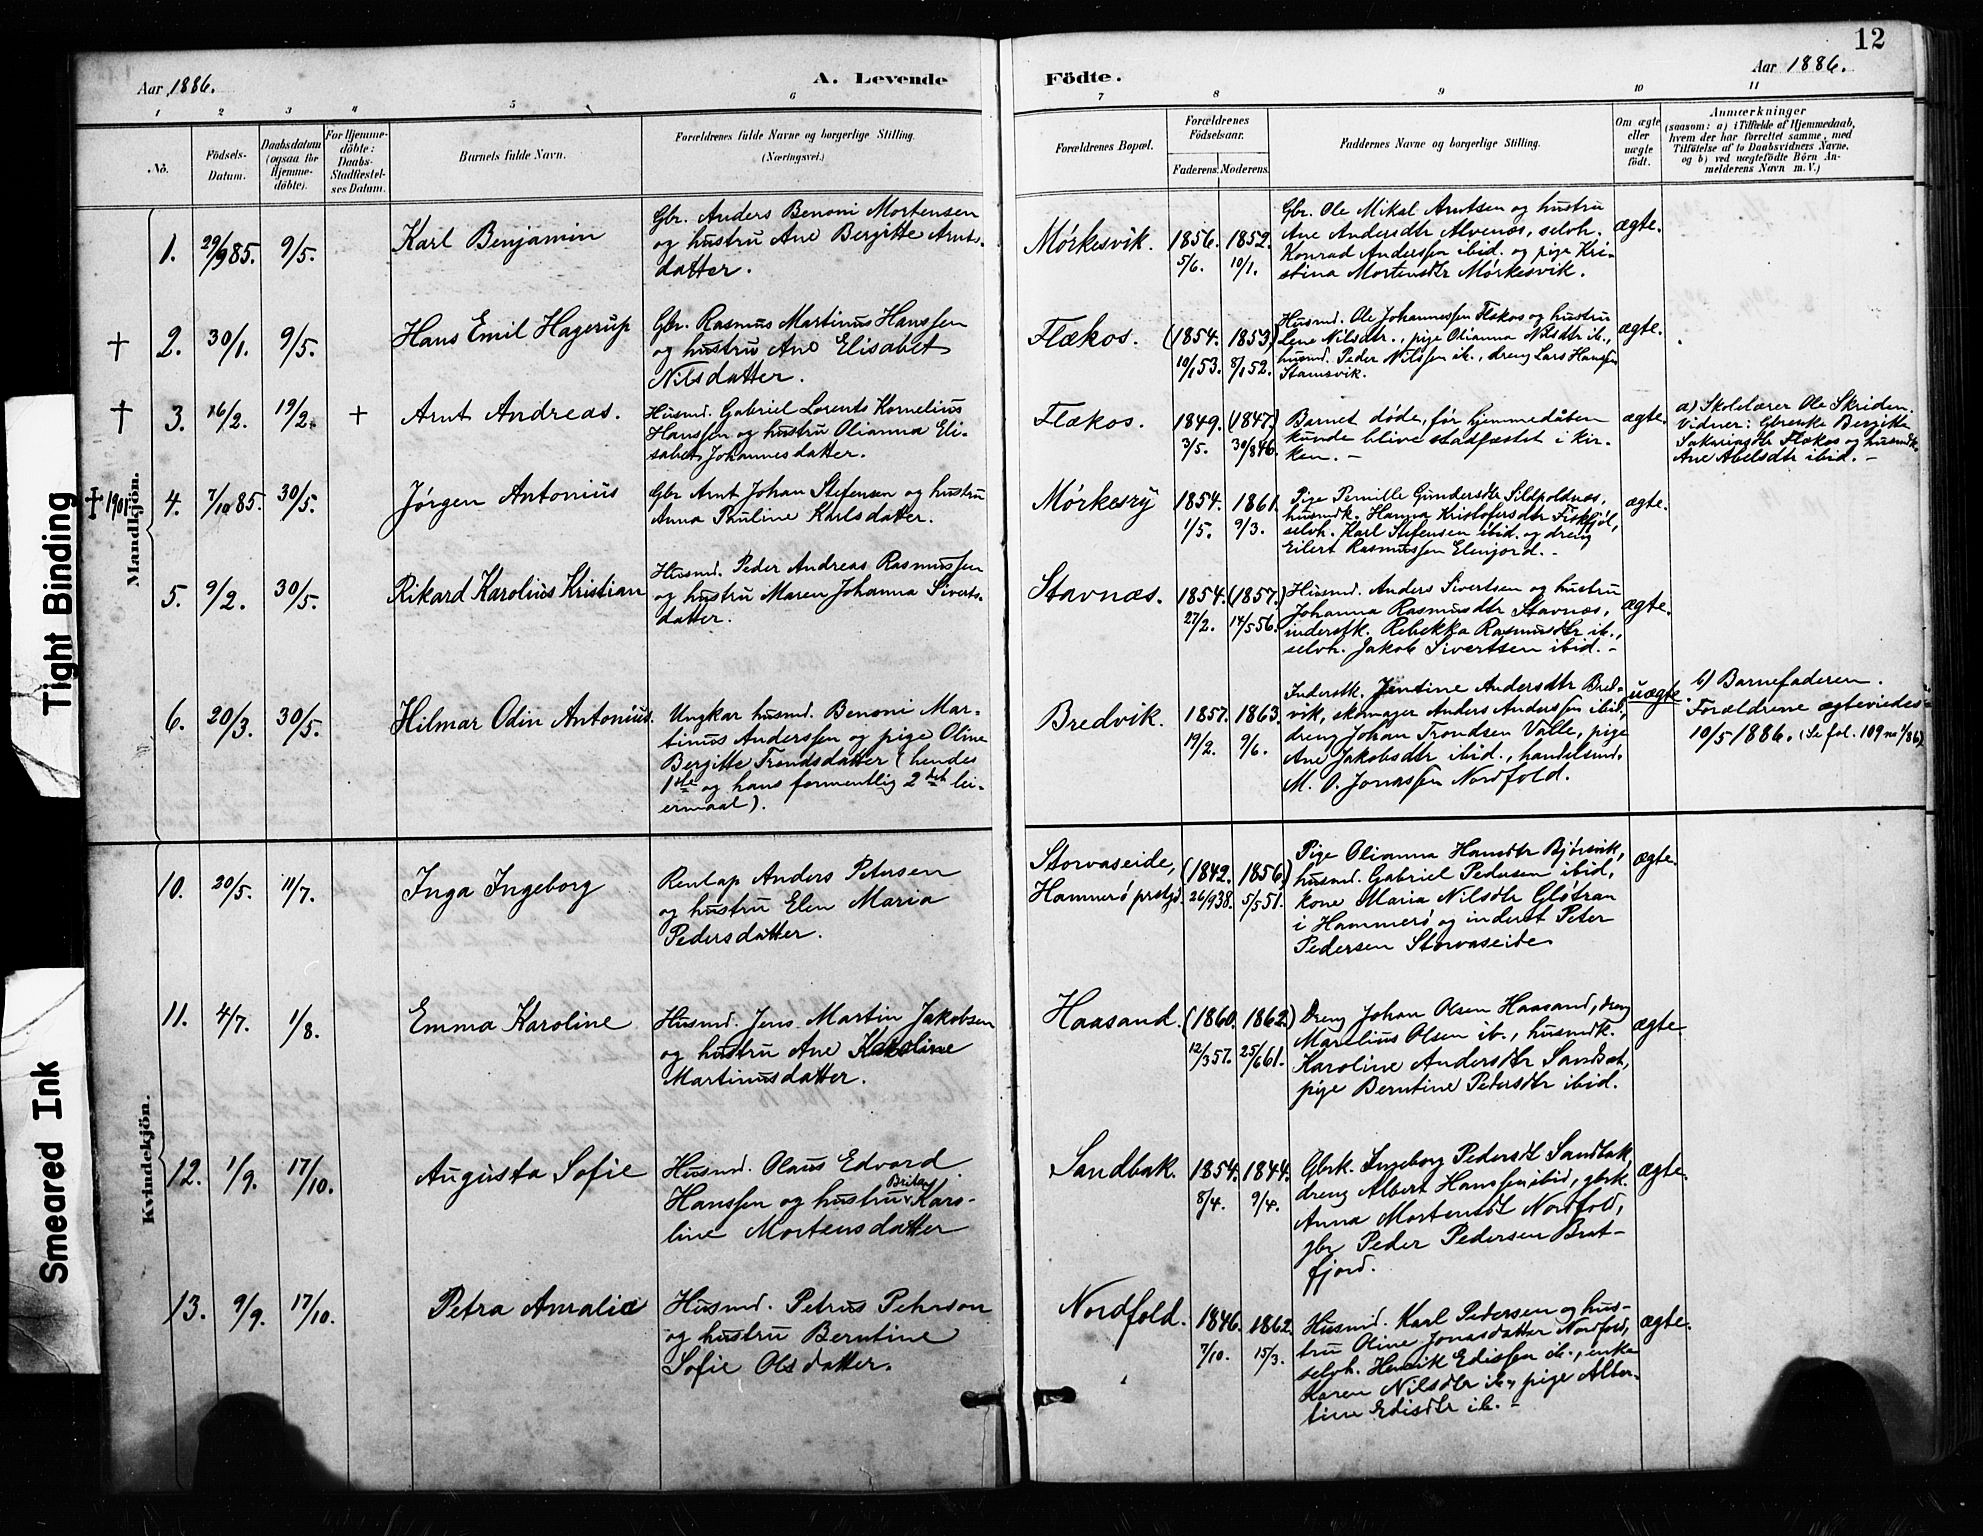 12
Aar 1886.
A. Levende
Födte.
Aar 1886.
1 2 3 4 5 6 7 8 9 10 11
No.
Födsels-
Datum.
Daabsdatum
(ogsaa for
Hjemme-
döbte).
For Hjemme-
döbte:
Daabs-
Stadfæstel-
ses Datum.
Barnets fulde Navn.
Forældrenes fulde Navne og borgerlige Stilling.
(Næringsvei.)
Forældrenes Bopæl.
Forældrenes
Födselsaar.
Faderens. Moderens.
Faddernes Navne og borgerlige Stilling.
Om ægte
eller
uægte
födt.
Anmærkninger
(saasom: a) i Tilfælde af Hjemmedaab,
hvem der har forrettet samme, med
Tilföielse af to Daabsvidners Navne,
og b) ved uægtefödte Börn An-
melderens Navn m. V.)
Mandkjön.
1. 29/9 85. 9/5.
Karl Benjamin
Gbr. Anders Benoni Mortensen
og hustru Ane Bergitte Arnts-
datter.
Mörkesvik.
1856. 1852.
5/6. 10/1.
Gbr. Ole Mikal Arntsen og hustru
Ane Andersdtr Alvenes, selvh.
Konrad Anderssen ibid. og pige Kri-
stina Mortensdtr Mörkesvik.
ægte.
† 2. 30/1. 9/5.
Hans Emil Hagerup
Gbr. Rasmus Martinus Hanssen
og hustru Ane Elisabet
Nilsdatter.
Flækos.
(1854. 1853)
10/1 53. 8/1 52.
Husmd. Ole Johannessen Flækos og hustru
Lene Nilsdtr., pige Olianna Nilsdtr ib.,
husmd. Peder Nilssen ib., dreng Lars Hanssen
Stamsvik.
ægte.
† 3. 16/2. 19/2. +
Arnt Andreas.
Husmd. Gabriel Lorents Kornelius
Hanssen og hustru Olianna Eli-
sabet Johannesdatter.
Flækos.
1849. (1847.)
3/5. 30/8 46.
Barnet döde, för hjemmedåben
kunde blive stadfæstet i kir-
ken. –
ægte.
a) Skolelærer Ole Skriden.
Vidner: Gbrenke Bergitte
Sakariasdtr Flækos og husmdk.
Ane Abelsdtr ibid. –
‡ 1901. 4. 7/10 85. 30/5.
Jørgen Antonius
Gbr Arnt Johan Stefensen og hustru
Anna Pauline Karlsdatter.
Mørkesry
1854. 1861.
1/5. 9/3.
Pige Pernille Gundersdtr Sildpoldnæs,
husmdk. Hanna Kristofersdtr Fiskfjöl,
selvh. Karl Stefensen ibid. og dreng
Eilert Rasmussen Elvfjord. –
ægte.
5. 9/2. 30/5.
Rikard Karolius Kristian
Husmd. Peder Andreas Rasmussen
og hustru Maren Johanna Siverts-
datter.
Stavnæs.
1854. (1857.)
27/2. 14/5 56.
Husmd. Anders Sivertsen og hustru
Johanna Rasmusdtr Stavnæs,
inderstk. Rebekka Rasmusdtr ib.,
selvh. Jakob Sivertsen ibid. –
ægte.
6. 20/3. 30/5.
Hilmar Odin Antonius.
Ungkar husmd. Benoni Mar-
tinus Anderssen og pige Oline
Bergitte Trondsdatter (hendes
1ste og hans formentlig 2det lei-
ermaal).
Bredvik.
1857. 1863.
19/2. 9/6.
Inderstk. Jentine Andersdtr Bred-
vik, skomager Anders Anderssen ibid,
dreng Johan Trondsen Valle, pige
Ane Jakobsdtr ibid., handelsmd.
M. O. Jonassen Nordfold.
uægte
b) Barnefaderen.
Forældrene ægteviedes
10/5 1886. (Se fol. 109 no 1/86)
Kvindekjön.
10. 20/5. 11/7.
Inga Ingeborg
Renlap Anders Petersen
og hustru Elen Maria
Pedersdatter.
Storvaseide,
Hammerö prstgd.
(1842. 1856.)
26/9 38. 5/5 51.
Pige Olianna Hansdtr Bjørsvik,
husmd. Gabriel Pedersen ibid,
kone Maria Nilsdtr Gløtran
i Hammerö og inderst Peter
Pedersen Storvaseide
ægte.
11. 4/7. 1/8.
Emma Karoline
Husmd. Jens Martin Jakobsen
og hustru Ane Karoline
Martinusdatter.
Haasand.
(1860. 1862.)
12/3 57. 25/6 61.
Dreng Johan Olsen Haasand, dreng
Marelius Olsen ib., husmdk.
Karoline Andersdtr Sandset,
pige Berntine Pedersdtr ibid.
ægte
12. 1/9. 17/10.
Augusta Sofie
Husmd. Olaus Edvard
Hanssen og hustru Brita Karo-
line Mortensdatter
Sandbak.
1854. 1844.
8/4. 9/4.
Gbrk. Ingeborg Pedersdtr Sandbak,
dreng Albert Hanssen ibid, gbrk.
Anna Mortensdtr Nordfold,
gbr Peder Pedersen Brat-
fjord.
ægte.
13. 9/9. 17/10.
Petra Amalia
Husmd. Petrus Pehrson
og hustru Berntine
Sofie Olsdatter.
Nordfold.
1846. 1862.
7/10. 15/3.
Husmd. Karl Pedersen og hus-
tru Oline Jonasdatter Nordfold,
selvh. Henrik Edissen ib., enke
Karen Nilsdtr ib., pige Alber-
tine Edisdtr ib. –
ægte.
Tight Binding
Smeared Ink